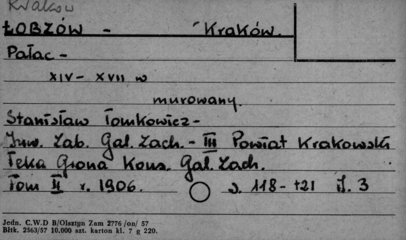 Kraków
ŁOBZÓW - Kraków.
Pałac -
XIV - XVII w
murowany.
Stanisław Tomkowicz -
Inw. Zab. Gal. Zach. - III Powiat Krakowski
Teka Grona Kons. Gal. Zach.
Tom II r. 1906. s. 118 - 121 il. 3
Jedn. C.W.D B/Olsztyn Zam 2776 /on/ 57
Bltk. 2563/57 10.000 szt. karton kl. 7 g 220.